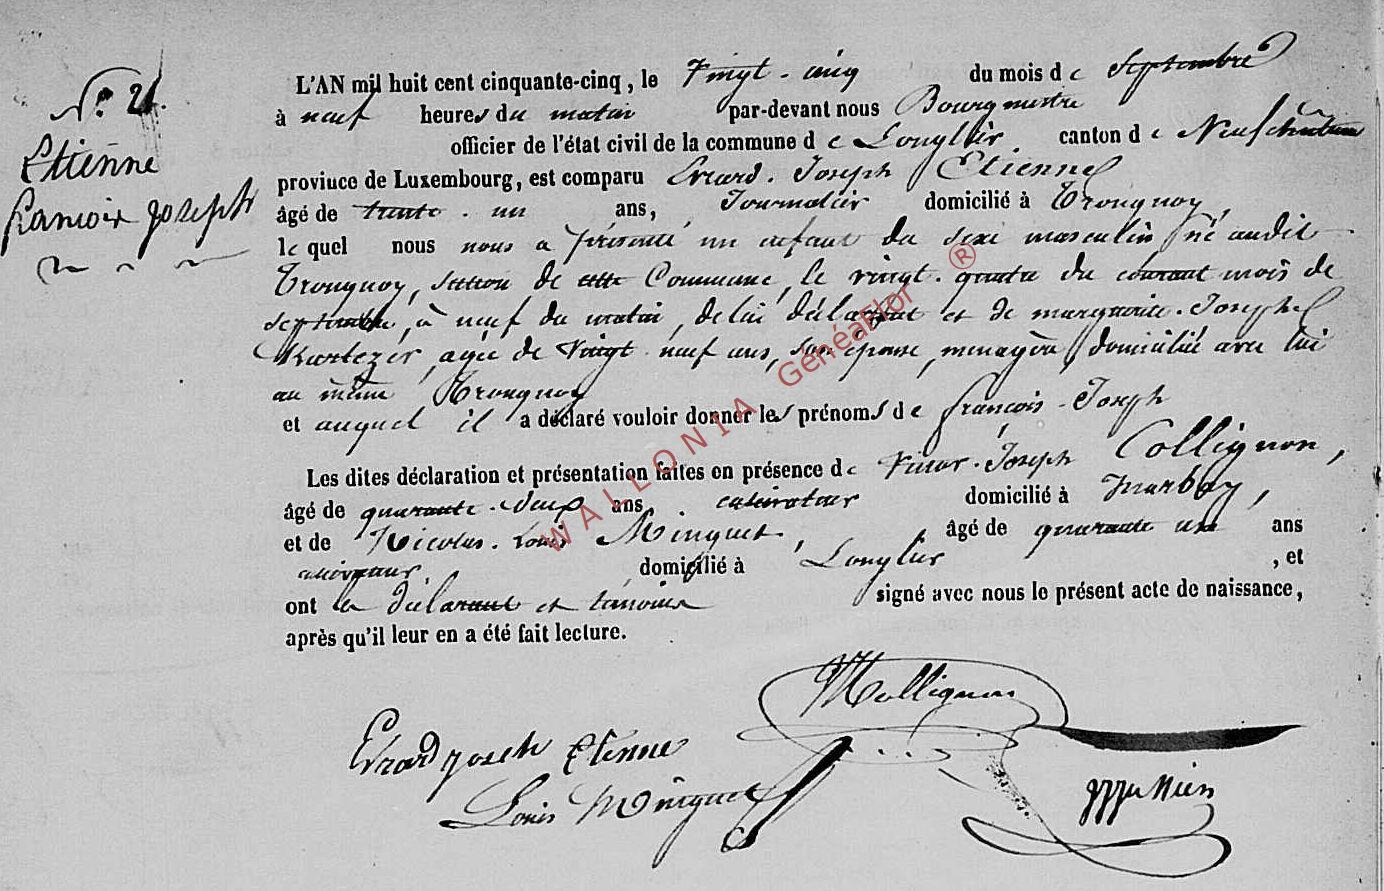 N.° 21.
Etienne
francoix joseph
L'AN mil huit cent cinquante-cinq, le Vingt-cinq du mois de Septembre
à neuf heures du matin par-devant nous Bourgmestre
officier de l'état civil de la commune de Longlier. canton de Neufchâteau
province de Luxembourg, est comparu Evrard-Joseph Etienne
âgé de trente-un ans, Journalier domicilié à Tronquoy,
lequel nous nous a présenté un enfant du sexe masculin, né audit
Tronquoy, section de cette Commune, le vingt-quatre du courant mois de
septembre, à neuf du matin, de lui déclarant et de marguerite-Joseph
agée de Vingt neuf ans, son épouse, menagère, domiciliée avec lui
au même Tronquoy
et auquel il a déclaré vouloir donner les prénoms de françois-Joseph
Les dites déclaration et présentation faites en présence de Victor-Joseph Collignon,
âgé de quarante-deux ans cultivateur domicilié à Marbay,
et de Nicolas-Louis Minguet, âgé de quarante un ans
cultivateur, domicilié à Longlier, et
ont le déclarant et témoins signé avec nous le présent acte de naissance,
après qu'il leur en a été fait lecture.
WALLONIA GénéaFlor ®
Collignon
Evrard joseph Etienne
Louis Minguet